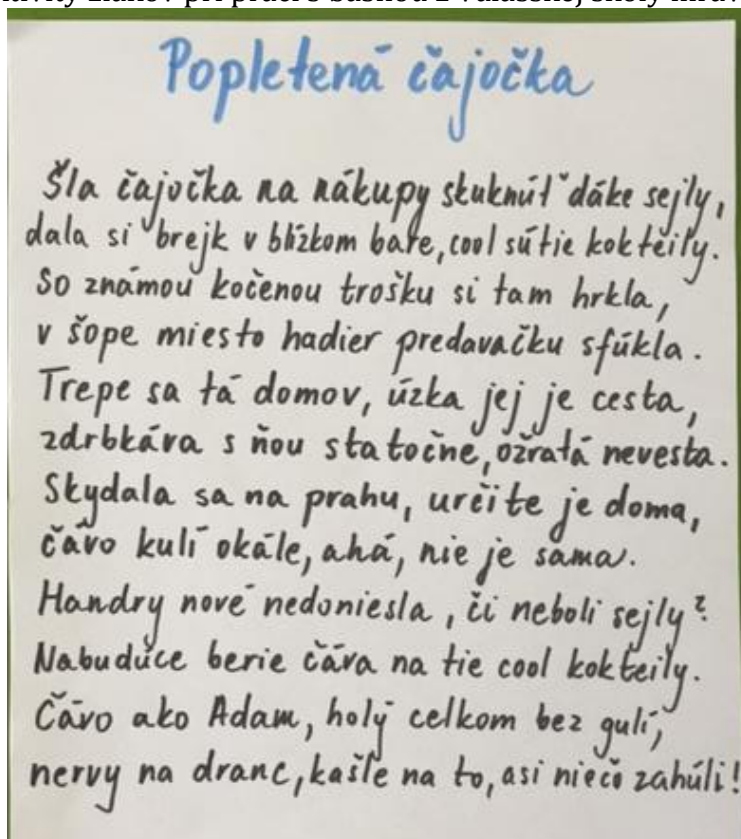 Popletená čajočka
Šla čajočka na nákupy skuknúť dáke sejly,
dala si brejk v blízkom bare, cool sú tie kokteily.
So známou kočenou trošku si tam hrkla,
v šope miesto hadier predavačku sfúkla.
Trepe sa tá domov, úzka jej je cesta,
zdrbkáva s ňou statočne, ožratá nevesta.
Skydala sa na prahu, určite je doma,
čávo kulí okále, ahá, nie je sama.
Handry nové nedoniesla, či neboli sejly?
Nabudúce berie čáva na tie cool kokteily.
Čávo ako Adam, holý celkom bez gulí,
nervy na dranc, kašle na to, asi niečo zahúli!